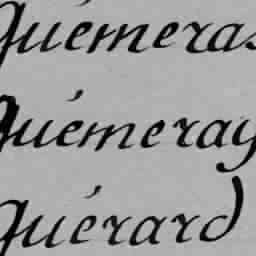 Quémeras
Quémeray
Quérard